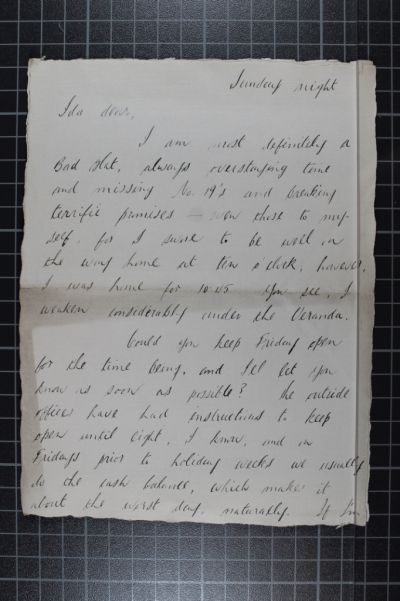 Sunday night
Ida dear,
I am most definitely a
Bad Hat, always overstaying time
and missing No. 19's and breaking
terrific promises — even those to my-
self, for I swore to be well on
the way home at ten o'clock, however,
I was home for 10.45. You see, I
weaken considerably under the Veranda.
Could you keep Friday open
for the time being, and I'll let you
know as soon as possible? The outside
offices have had instructions to keep
open until eight, I know, and on
Fridays prior to holiday weeks we usually
do the cash balance, which makes it
about the worst day, naturally. If I'm